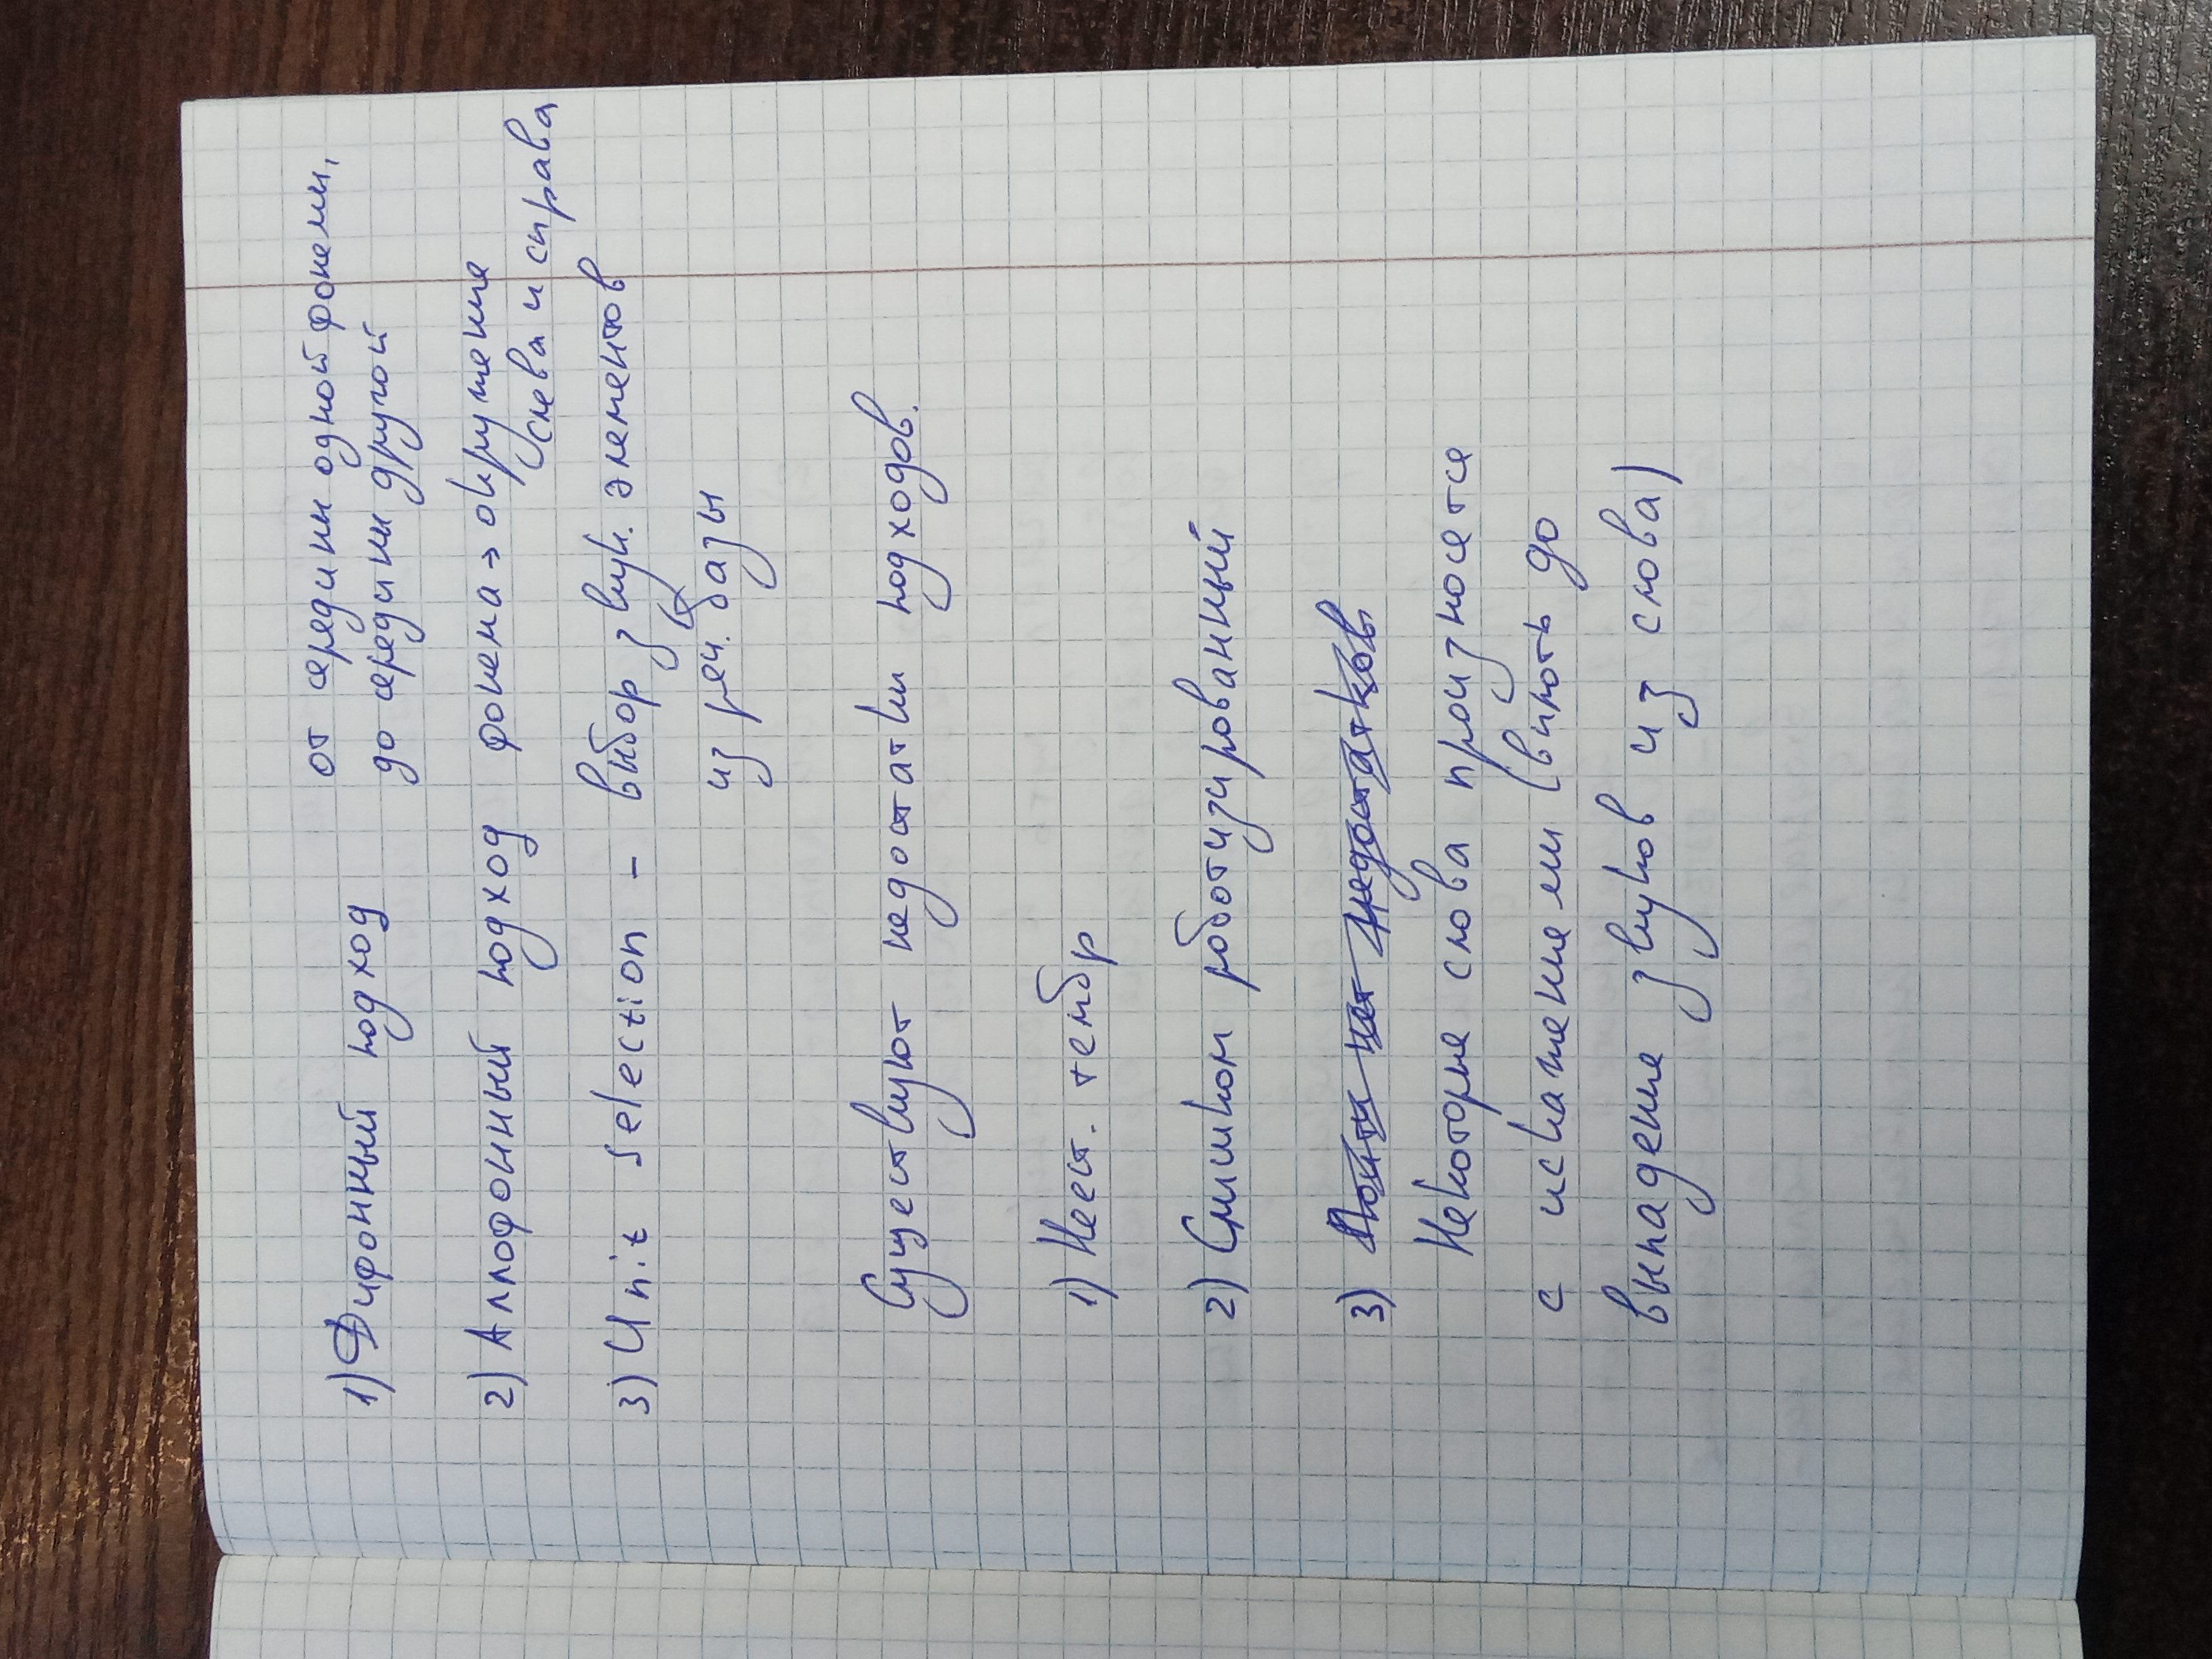 1) Дифонный подход от середины одной фонемы,
до середины другой
2) Аллофонный подход фонема → окружение
слева и справа
3) Unit Selection – выбор звук. элементов
из реч. базы
Существуют недостатки подходов.
1) Неест. тембр
2) Слишком роботизированный
3) Почти нет недостатков
Некоторые слова произносятся
с искажениями (вплоть до
выпадение звуков из слова)